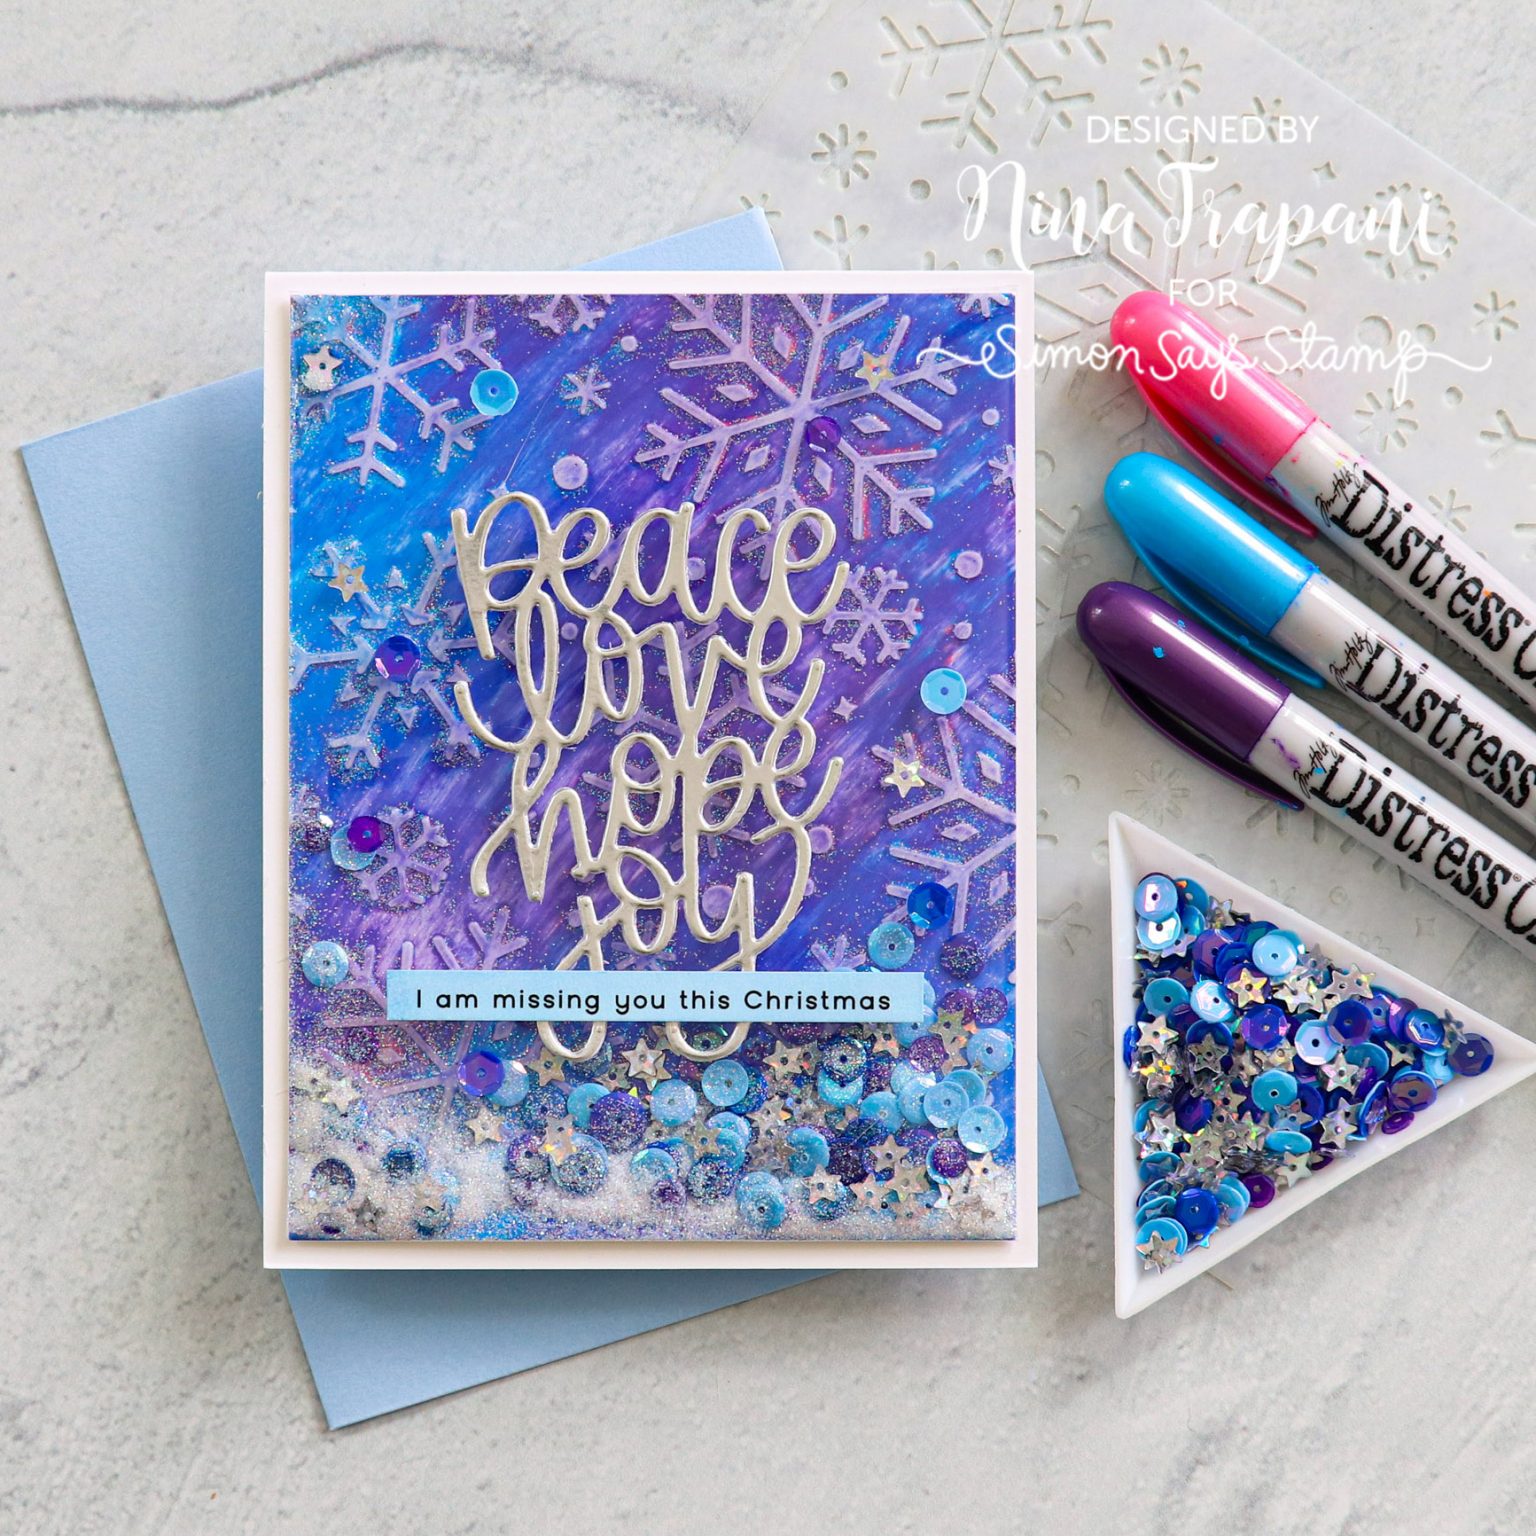 DESIGNED BY
Nina Trapani
FOR
Simon Says Stamp
peace
love
hope
joy
I am missing you this Christmas
Tim Holtz
Distress
Tim Holtz
Distress
Tim Holtz
Distress